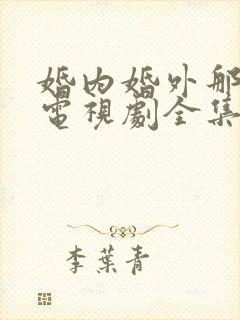 婚內婚外那
電視劇全集
李葉青